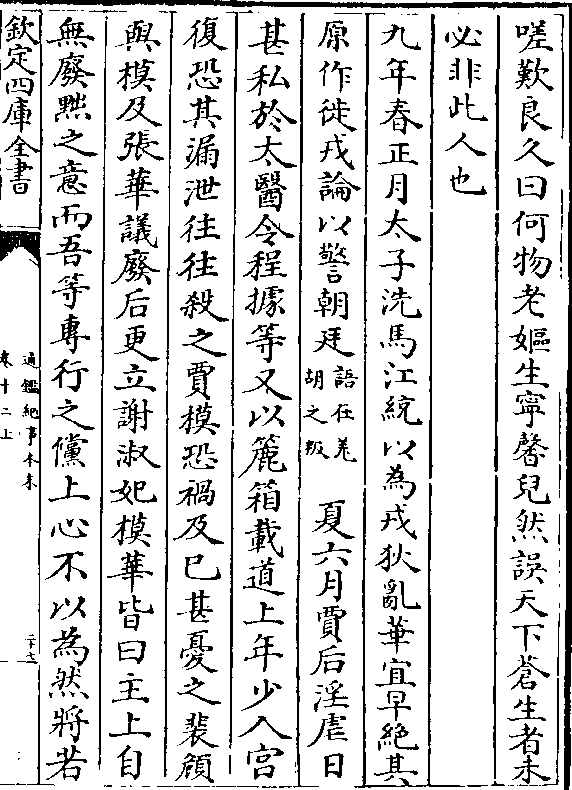 嗟歎良久曰何物老嫗生寧馨兒然誤天下蒼生者未
必非此人也
九年春正月太子洗馬江統以為戎狄亂華宜早絶其
原作徙戎論以警朝廷語在羌胡之叛 夏六月賈后淫虐日
甚私於太醫令程據等又以簏箱載道上年少入宫
復恐其漏泄往往殺之賈模恐禍及已甚憂之裴頠
與模及張華議廢后更立謝淑妃模華皆曰主上自
無廢黜之意而吾等專行之儻上心不以為然將若
欽定四庫全書
通鑑紀事本末
卷十二上